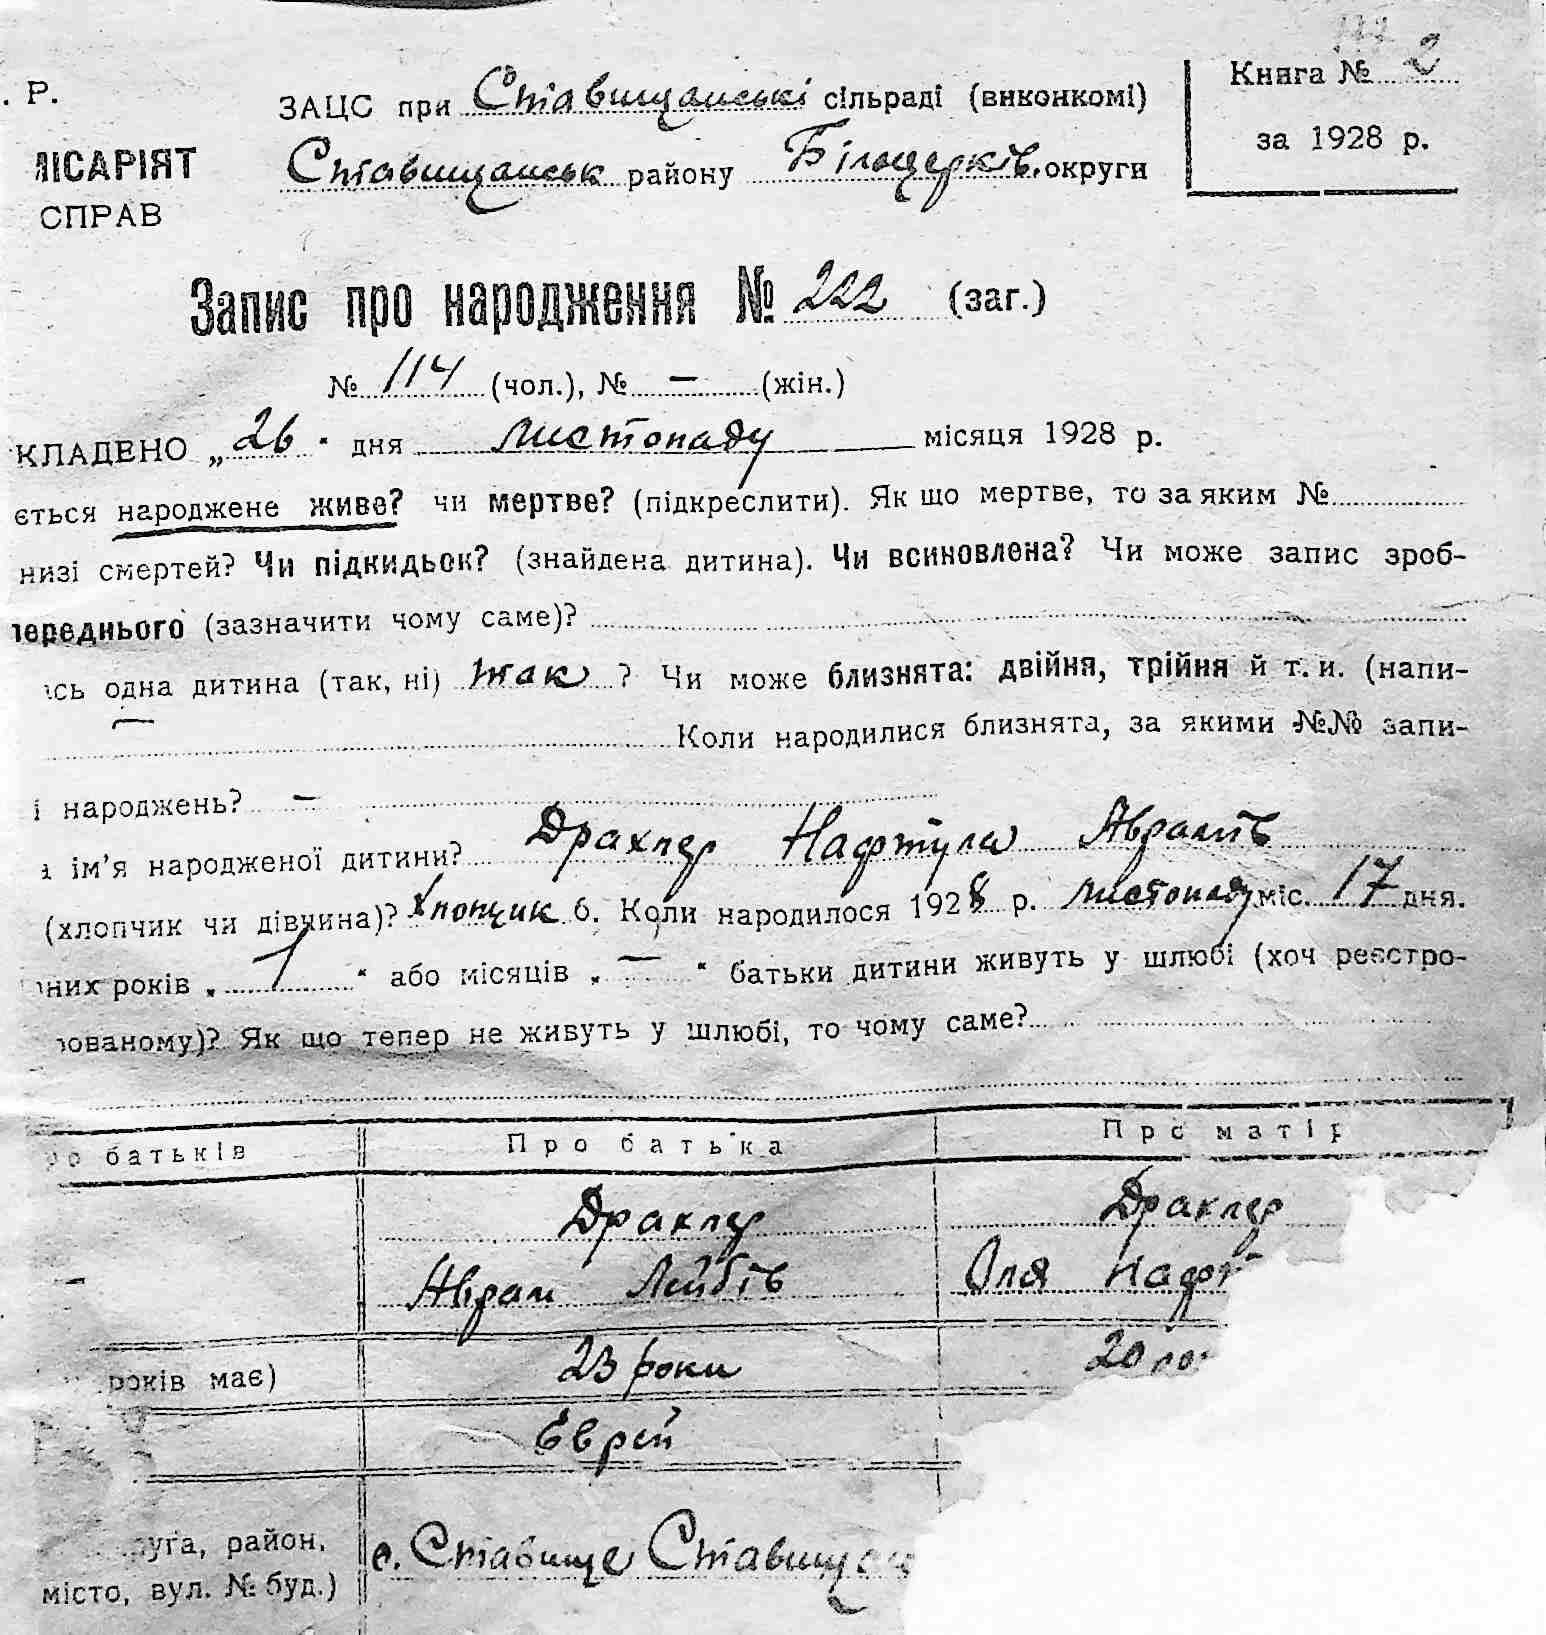 . Р.
ЗАЦС при Ставищанські сільраді (виконкомі)
Книга № 2
ІСАРІЯТ
Ставищанськ району Білоцерків. округи
за 1928 р.
СПРАВ
Запис про народження № 222 (заг.)
№ 114 (чол.), № — (жін.)
КЛАДЕНО „26“ дня листопаду місяця 1928 р.
ється народжене живе? чи мертве? (підкреслити). Як що мертве, то за яким №
низі смертей? Чи підкидьок? (знайдена дитина). Чи всиновлена? Чи може запис зроб-
переднього (зазначити чому саме)?
сь одна дитина (так, ні) так ? Чи може близнята: двійня, трійня й т. и. (напи-
— Коли народилися близнята, за якими №№ запи-
і народжень? —
ім’я народженої дитини? Драхлер Нафтула Аврамів
(хлопчик чи дівчина)? Хлопчик 6. Коли народилося 1928 р. листопаду міс. 17 дня.
них років „ 1 “ або місяців „ — “ батьки дитини живуть у шлюбі (хоч реєстро-
ованому)? Як що тепер не живуть у шлюбі, то чому саме?
ро батьків Про батька Про матір
Драхлер Драхлер
Аврам Лейбів Оля Нафт
років має) 23 роки 20 ро
Єврей
руга, район, с. Ставище Ставищан
місто, вул. № буд.)